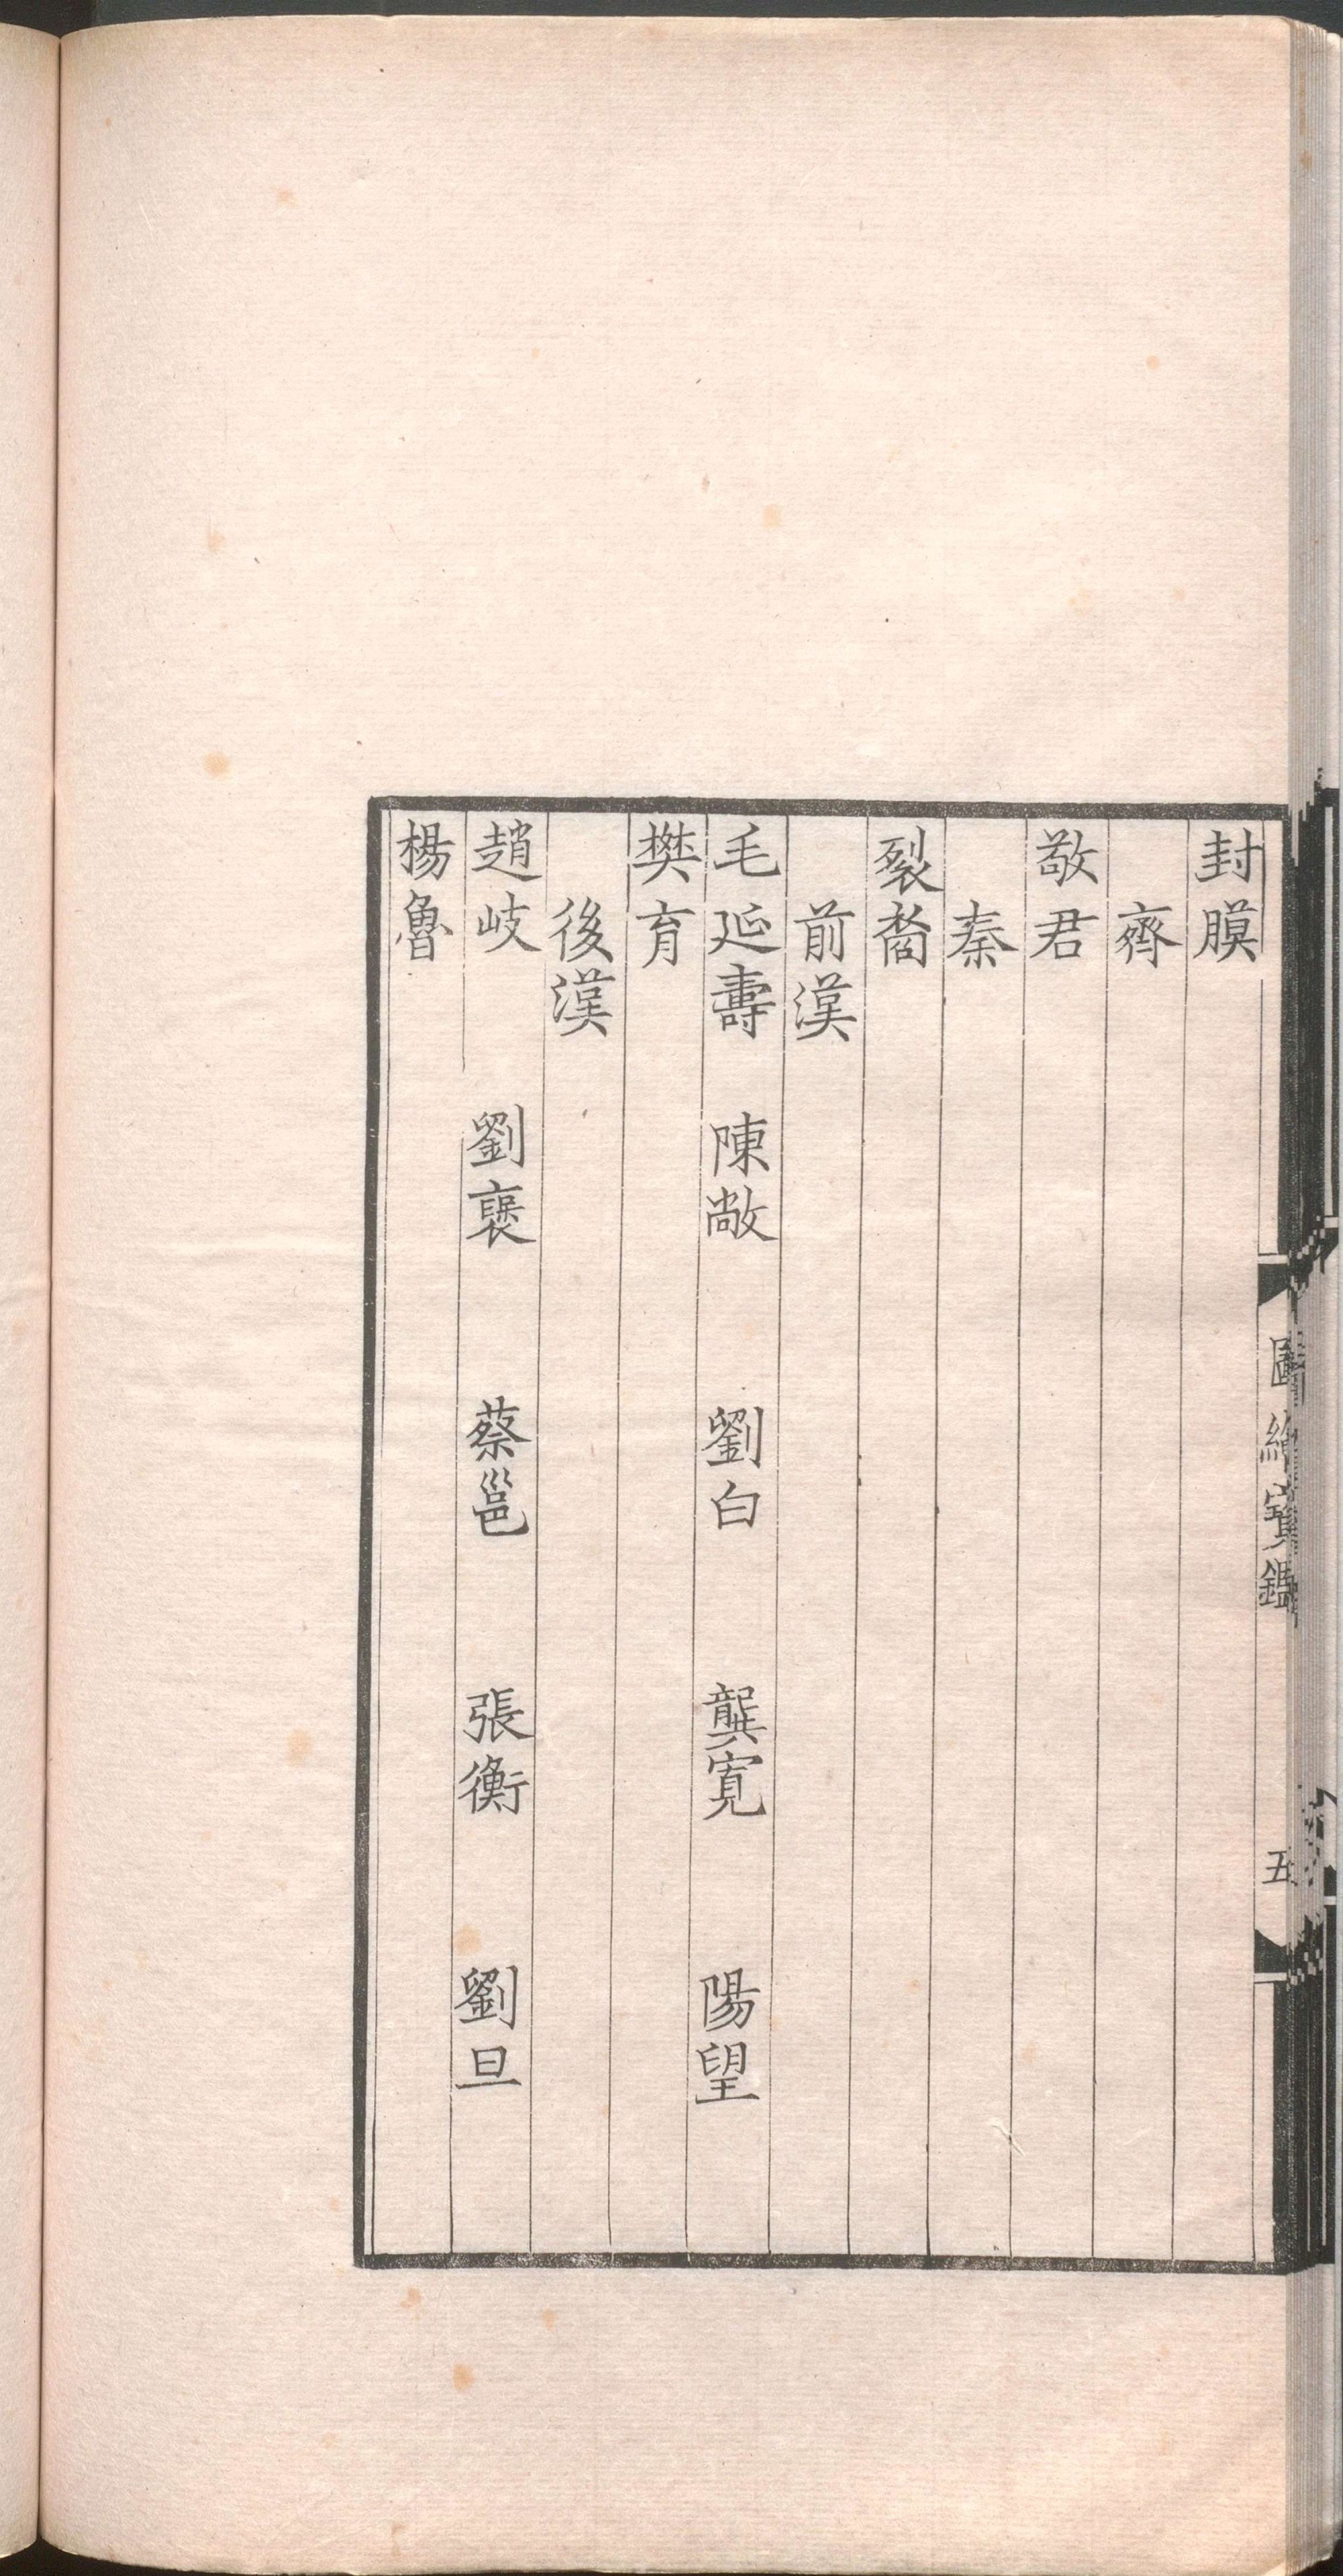 封膜
齊
敬君
秦
裂裔
前漢
毛延壽 陳敞 劉白 龔寬 陽望
樊育
後漢
趙岐 劉褒 蔡邕 張衡 劉旦
楊魯
圖繪寶鑑
五